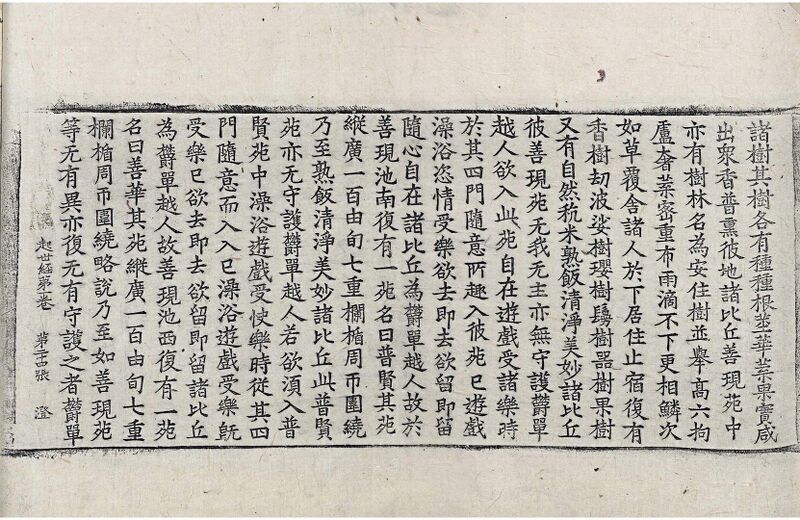 諸樹其樹各有種種根莖華葉果實咸
出衆香普熏彼地諸比丘善現苑中
亦有樹林名為安住樹並舉高六拘
盧奢葉密重布雨滴不下更相鱗次
如草覆舍諸人於下居住止宿復有
香樹劫波娑樹瓔樹鬘樹器樹果樹
又有自然秔米熟飯清淨美妙諸比丘
彼善現苑无我无主亦無守護欝單
越人欲入此苑自在遊戲受諸樂時
於其四門隨意所趣入彼苑已遊戲
澡浴恣情受樂欲去即去欲留即留
隨心自在諸比丘為欝單越人故於
善現池南復有一苑名曰普賢其苑
縱廣一百由旬七重欄楯周帀圍繞
乃至熟飯清淨美妙諸比丘此普賢
苑亦无守護欝單越人若欲須入普
賢苑中澡浴遊戲受快樂時從其四
門隨意而入入已澡浴遊戲受樂旣
受樂已欲去即去欲留即留諸比丘
為欝單越人故善現池西復有一苑
名曰善華其苑縱廣一百由旬七重
欄楯周帀圍繞略說乃至如善現苑
等无有異亦復无有守護之者欝單
起世經第一卷 第二十四張 澄